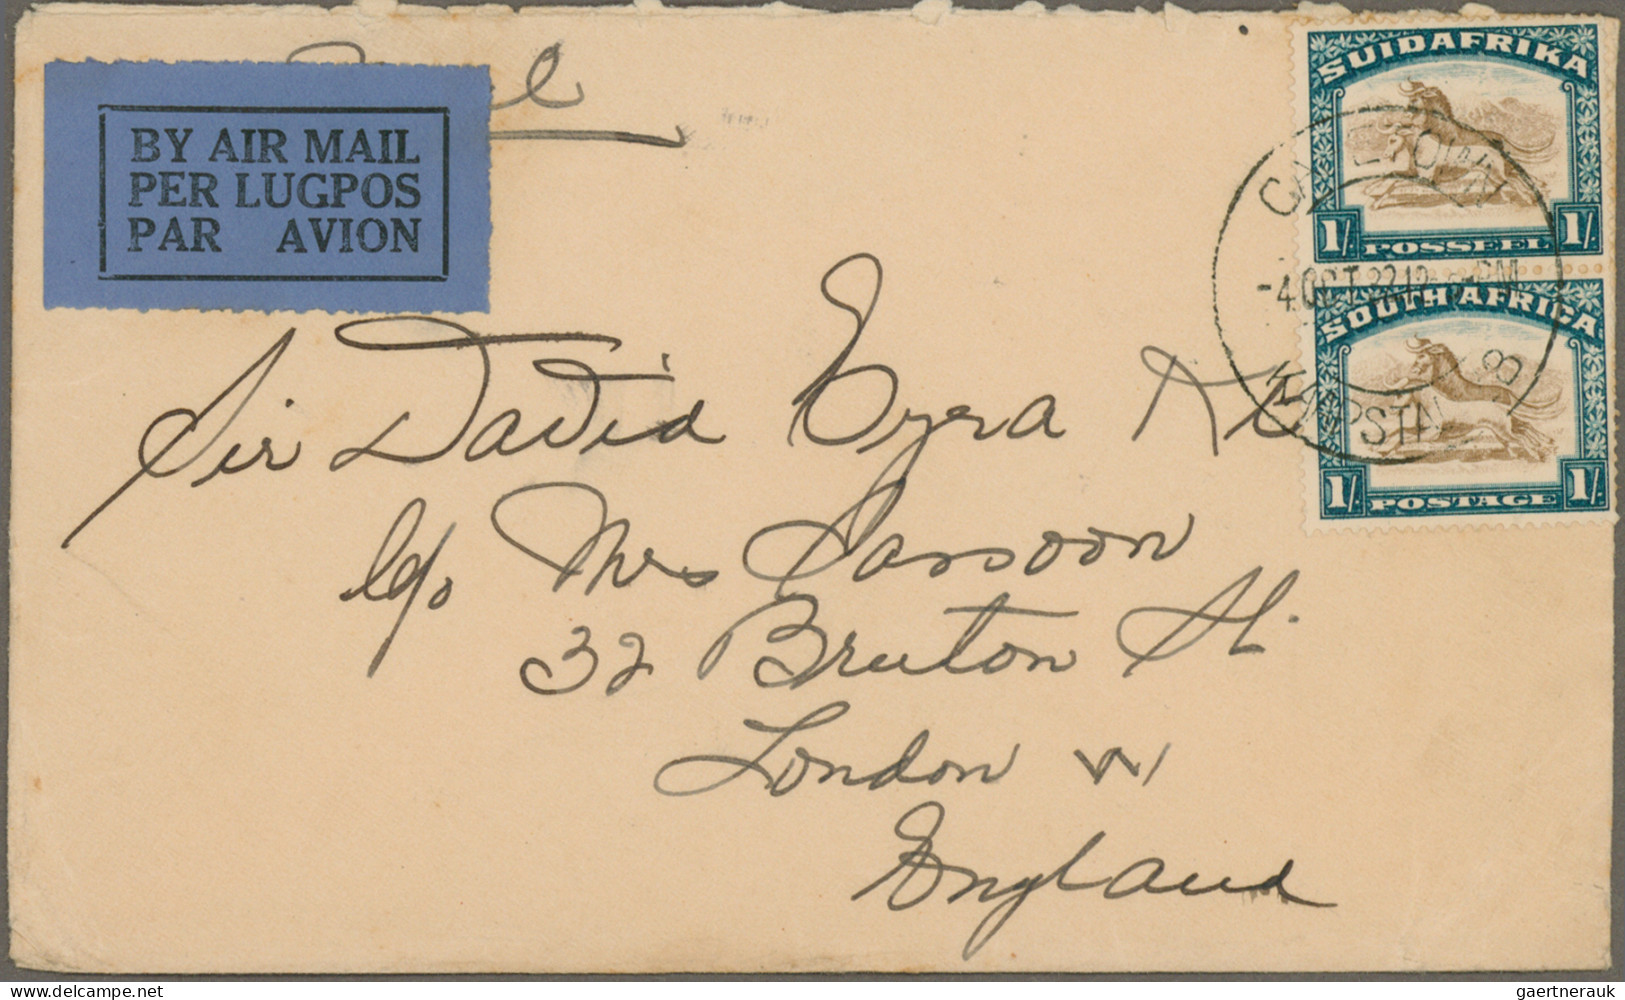 BY AIR MAIL
PER LUGPOS
PAR AVION
SUIDAFRIKA
1/. POSSEËL 1/.
CAPETOWN
-4 OCT 32 12 PM
KAAPSTAD
8
SOUTH AFRICA
1/. POSTAGE 1/.
Sir David Ezra Kt
c/o Mrs Sassoon
32 Bruton St.
London W1
England
gaertnerauk
delcampe.net